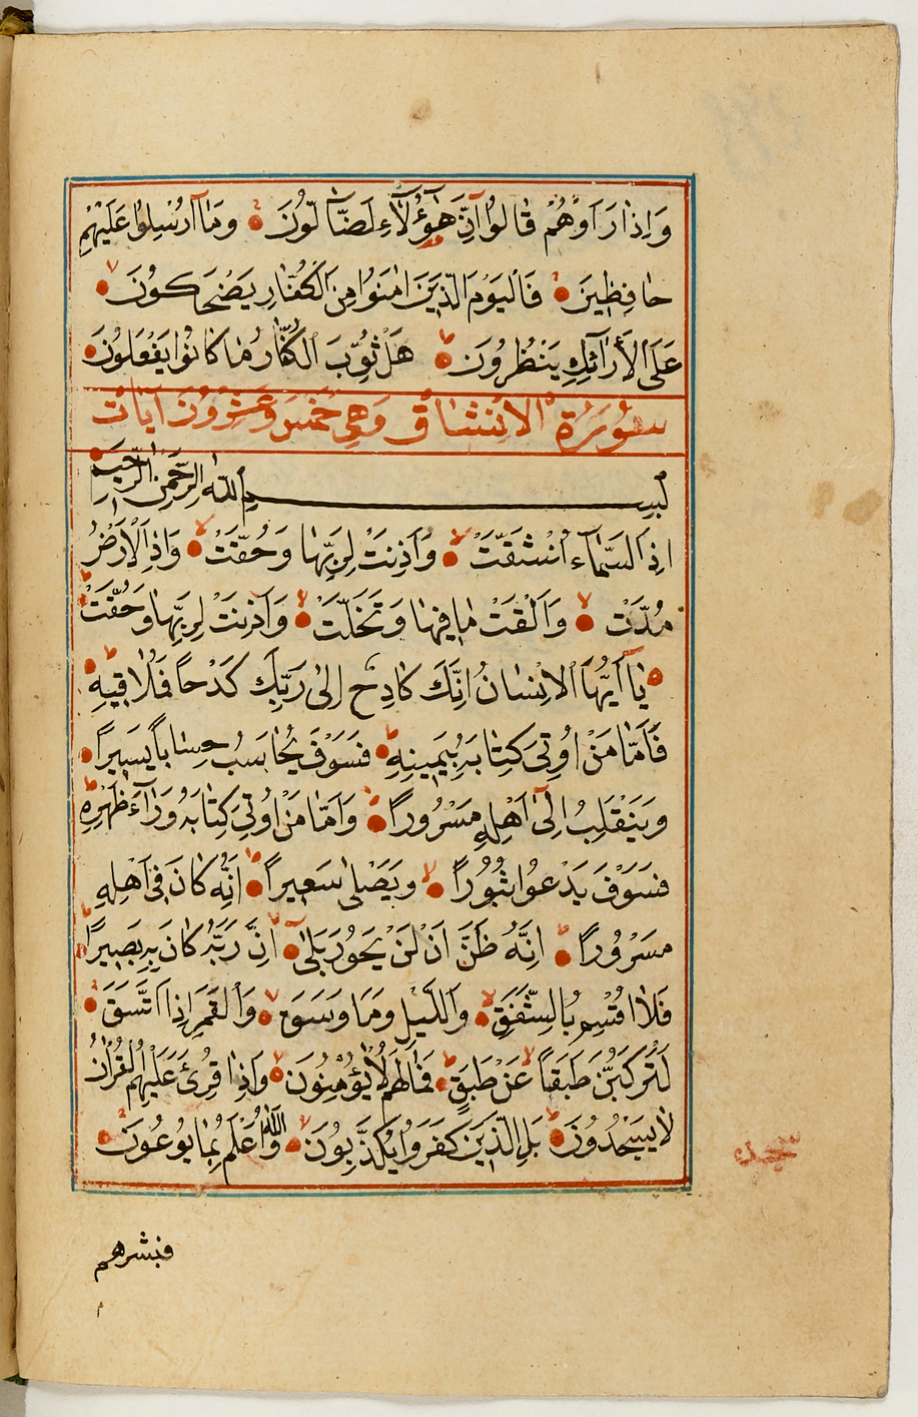 وَاِذَا رَاَوْهُمْ قَالُوا اِنَّ هٰؤُلَاءِ لَضَالُّونَ وَمَا اُرْسِلُوا عَلَيْهِمْ
حَافِظِينَ فَالْيَوْمَ الَّذِينَ اٰمَنُوا مِنَ الْكُفَّارِ يَضْحَكُونَ
عَلَى الْاَرَائِكِ يَنْظُرُونَ هَلْ ثُوِّبَ الْكُفَّارُ مَا كَانُوا يَفْعَلُونَ
سورة الانشقاق وهي خمس وعشرون آيات
بِسْمِ اللّٰهِ الرَّحْمٰنِ الرَّحِيمِ
اِذَا السَّمَاءُ انْشَقَّتْ وَاَذِنَتْ لِرَبِّهَا وَحُقَّتْ وَاِذَا الْاَرْضُ
مُدَّتْ وَاَلْقَتْ مَا فِيهَا وَتَخَلَّتْ وَاَذِنَتْ لِرَبِّهَا وَحُقَّتْ
يَا اَيُّهَا الْاِنْسَانُ اِنَّكَ كَادِحٌ اِلٰى رَبِّكَ كَدْحًا فَمُلَاقِيهِ
فَاَمَّا مَنْ اُوتِيَ كِتَابَهُ بِيَمِينِهِ فَسَوْفَ يُحَاسَبُ حِسَابًا يَسِيرًا
وَيَنْقَلِبُ اِلٰى اَهْلِهِ مَسْرُورًا وَاَمَّا مَنْ اُوتِيَ كِتَابَهُ وَرَاءَ ظَهْرِهِ
فَسَوْفَ يَدْعُوا ثُبُورًا وَيَصْلٰى سَعِيرًا اِنَّهُ كَانَ فِي اَهْلِهِ
مَسْرُورًا اِنَّهُ ظَنَّ اَنْ لَنْ يَحُورَ بَلٰى اِنَّ رَبَّهُ كَانَ بِهِ بَصِيرًا
فَلَا اُقْسِمُ بِالشَّفَقِ وَاللَّيْلِ وَمَا وَسَقَ وَالْقَمَرِ اِذَا اتَّسَقَ
لَتَرْكَبُنَّ طَبَقًا عَنْ طَبَقٍ فَمَا لَهُمْ لَا يُؤْمِنُونَ وَاِذَا قُرِئَ عَلَيْهِمُ الْقُرْاٰنُ
لَا يَسْجُدُونَ بَلِ الَّذِينَ كَفَرُوا يُكَذِّبُونَ وَاللّٰهُ اَعْلَمُ بِمَا يُوعُونَ
سجده
فبشرهم